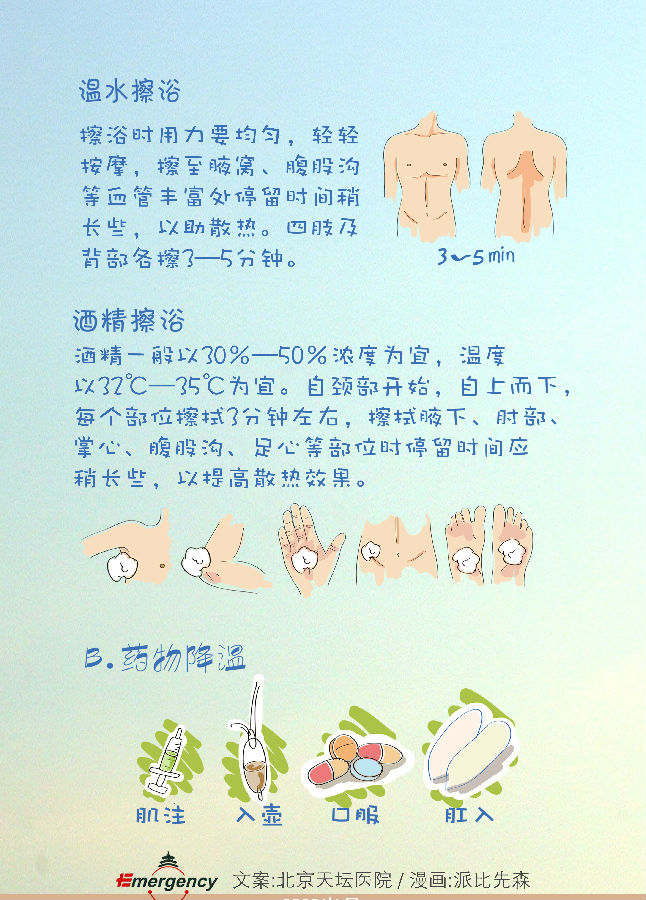 温水擦浴
擦浴时用力要均匀，轻轻
按摩，擦至腋窝、腹股沟
等血管丰富处停留时间稍
长些，以助散热。四肢及
背部各擦3—5分钟。
3~5min
酒精擦浴
酒精一般以30%—50%浓度为宜，温度
以32℃—35℃为宜。自颈部开始，自上而下，
每个部位擦拭3分钟左右，擦拭腋下、肘部、
掌心、腹股沟、足心等部位时停留时间应
稍长些，以提高散热效果。
B.药物降温
肌注 入壶 口服 肛入
Emergency 文案:北京天坛医院 / 漫画:派比先森